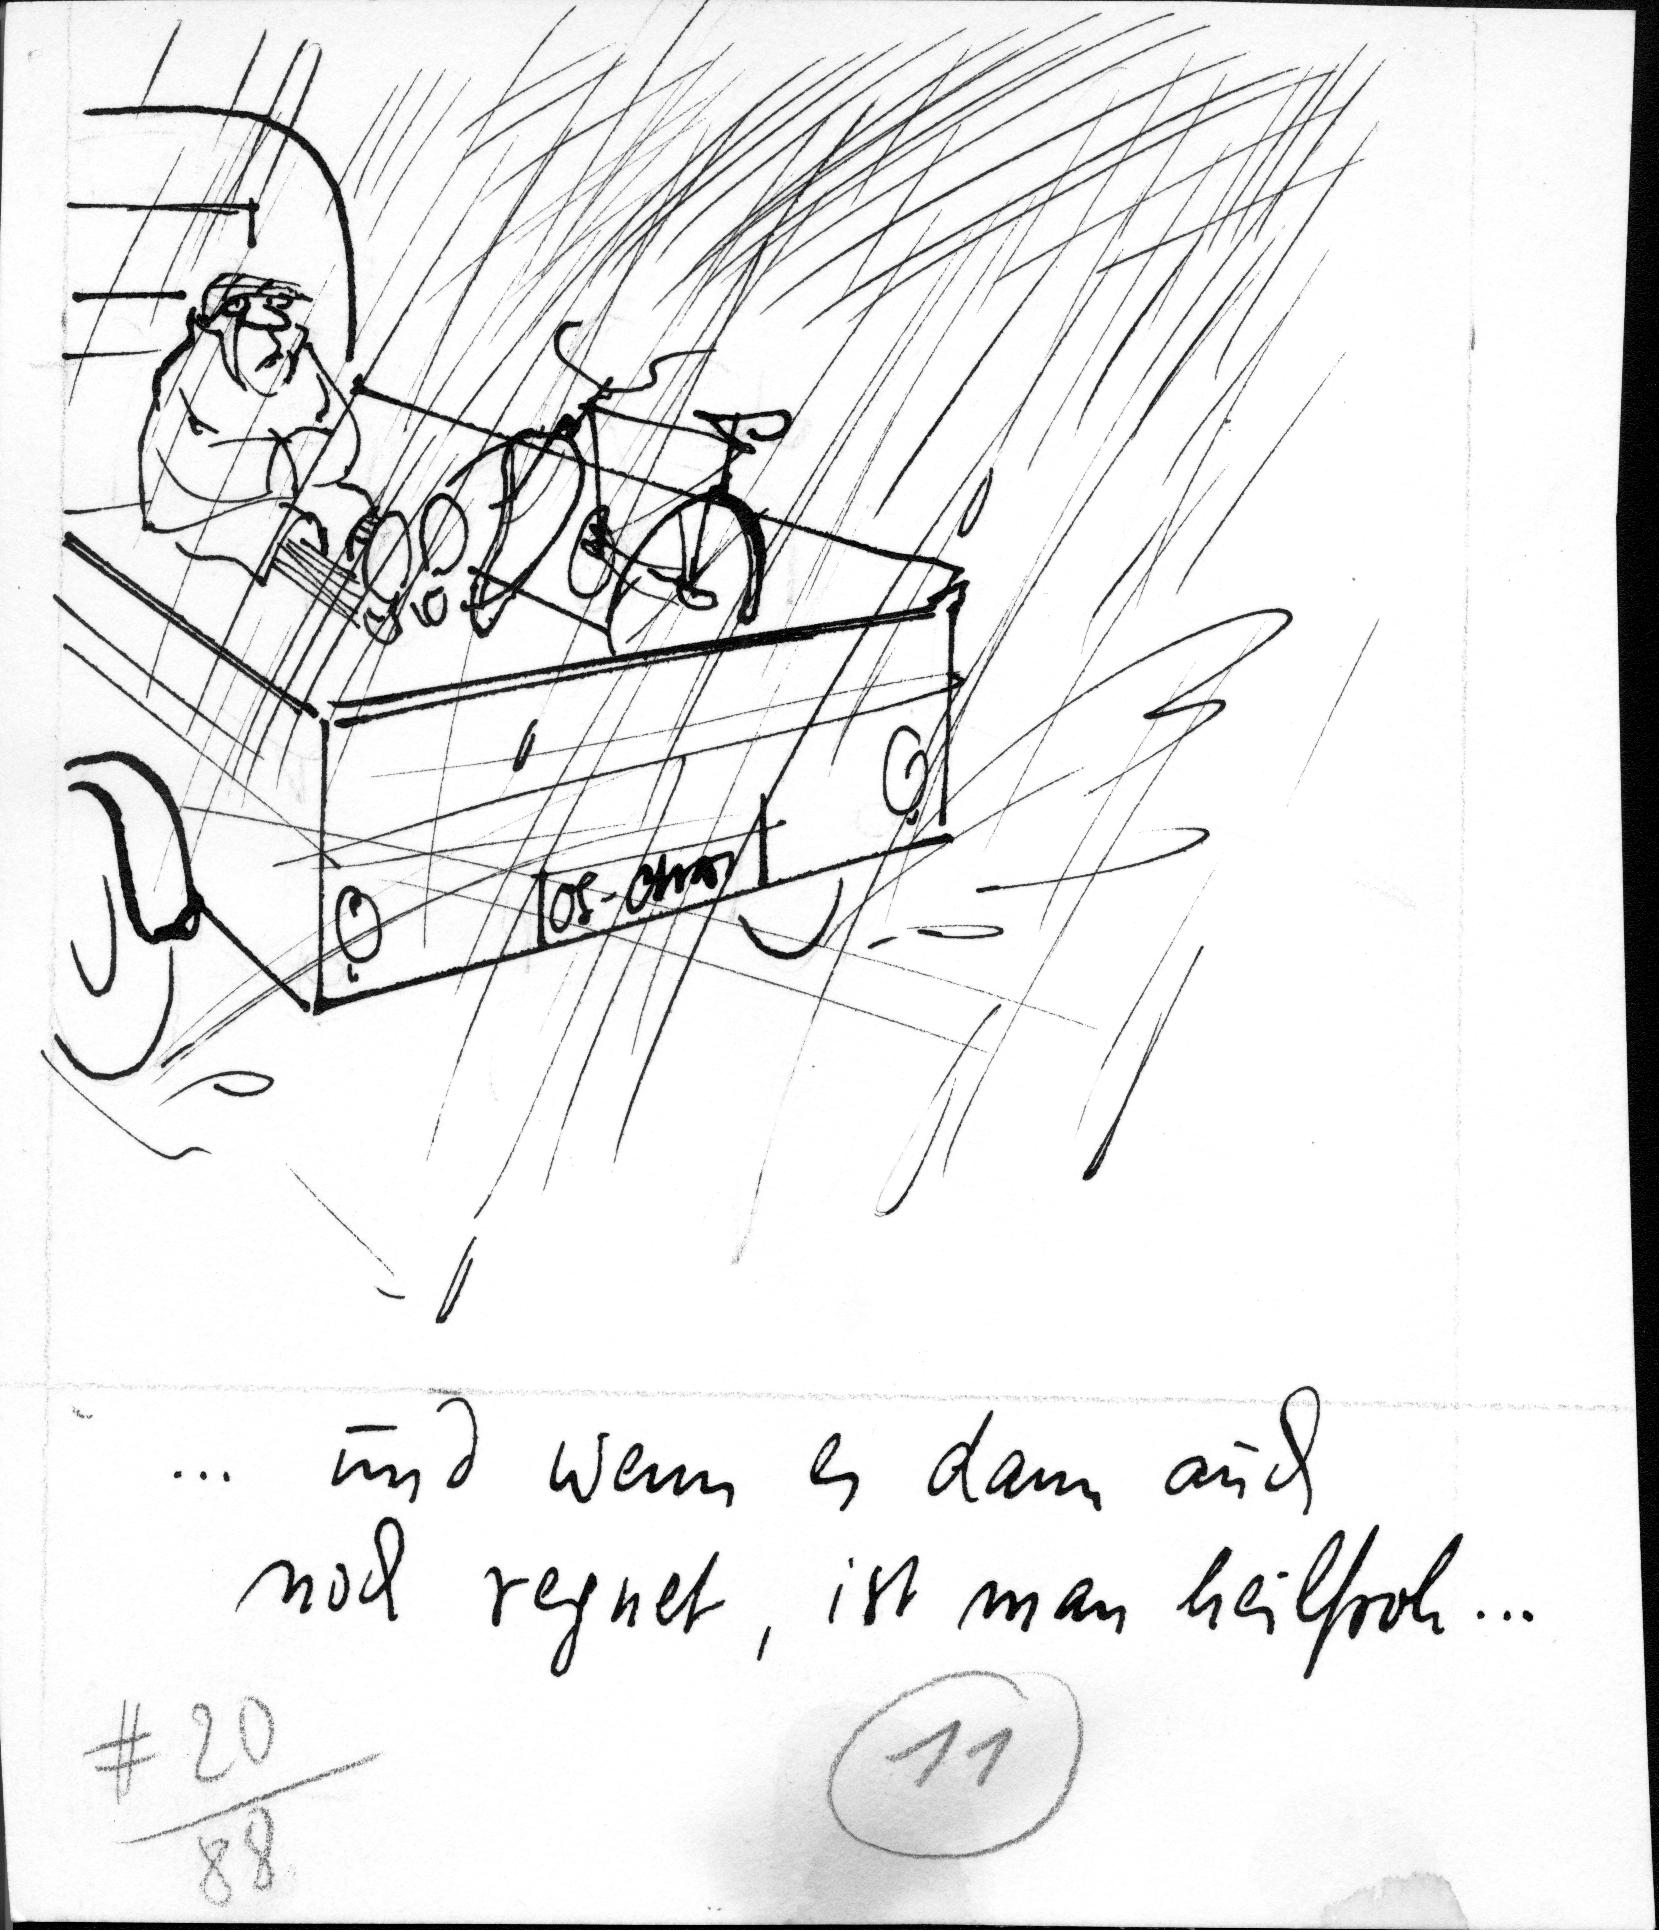 OS-
... und wenn es dann auch
noch regnet, ist man heilfroh...
# 20
88
11